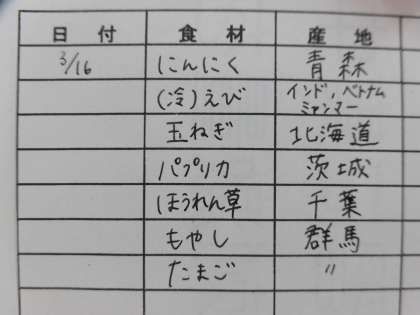 日 付 食 材 産 地
3/16 にんにく 青森
(冷)えび インド、ベトナム
ミャンマー
玉ねぎ 北海道
パプリカ 茨城
ほうれん草 千葉
もやし 群馬
たまご 〃